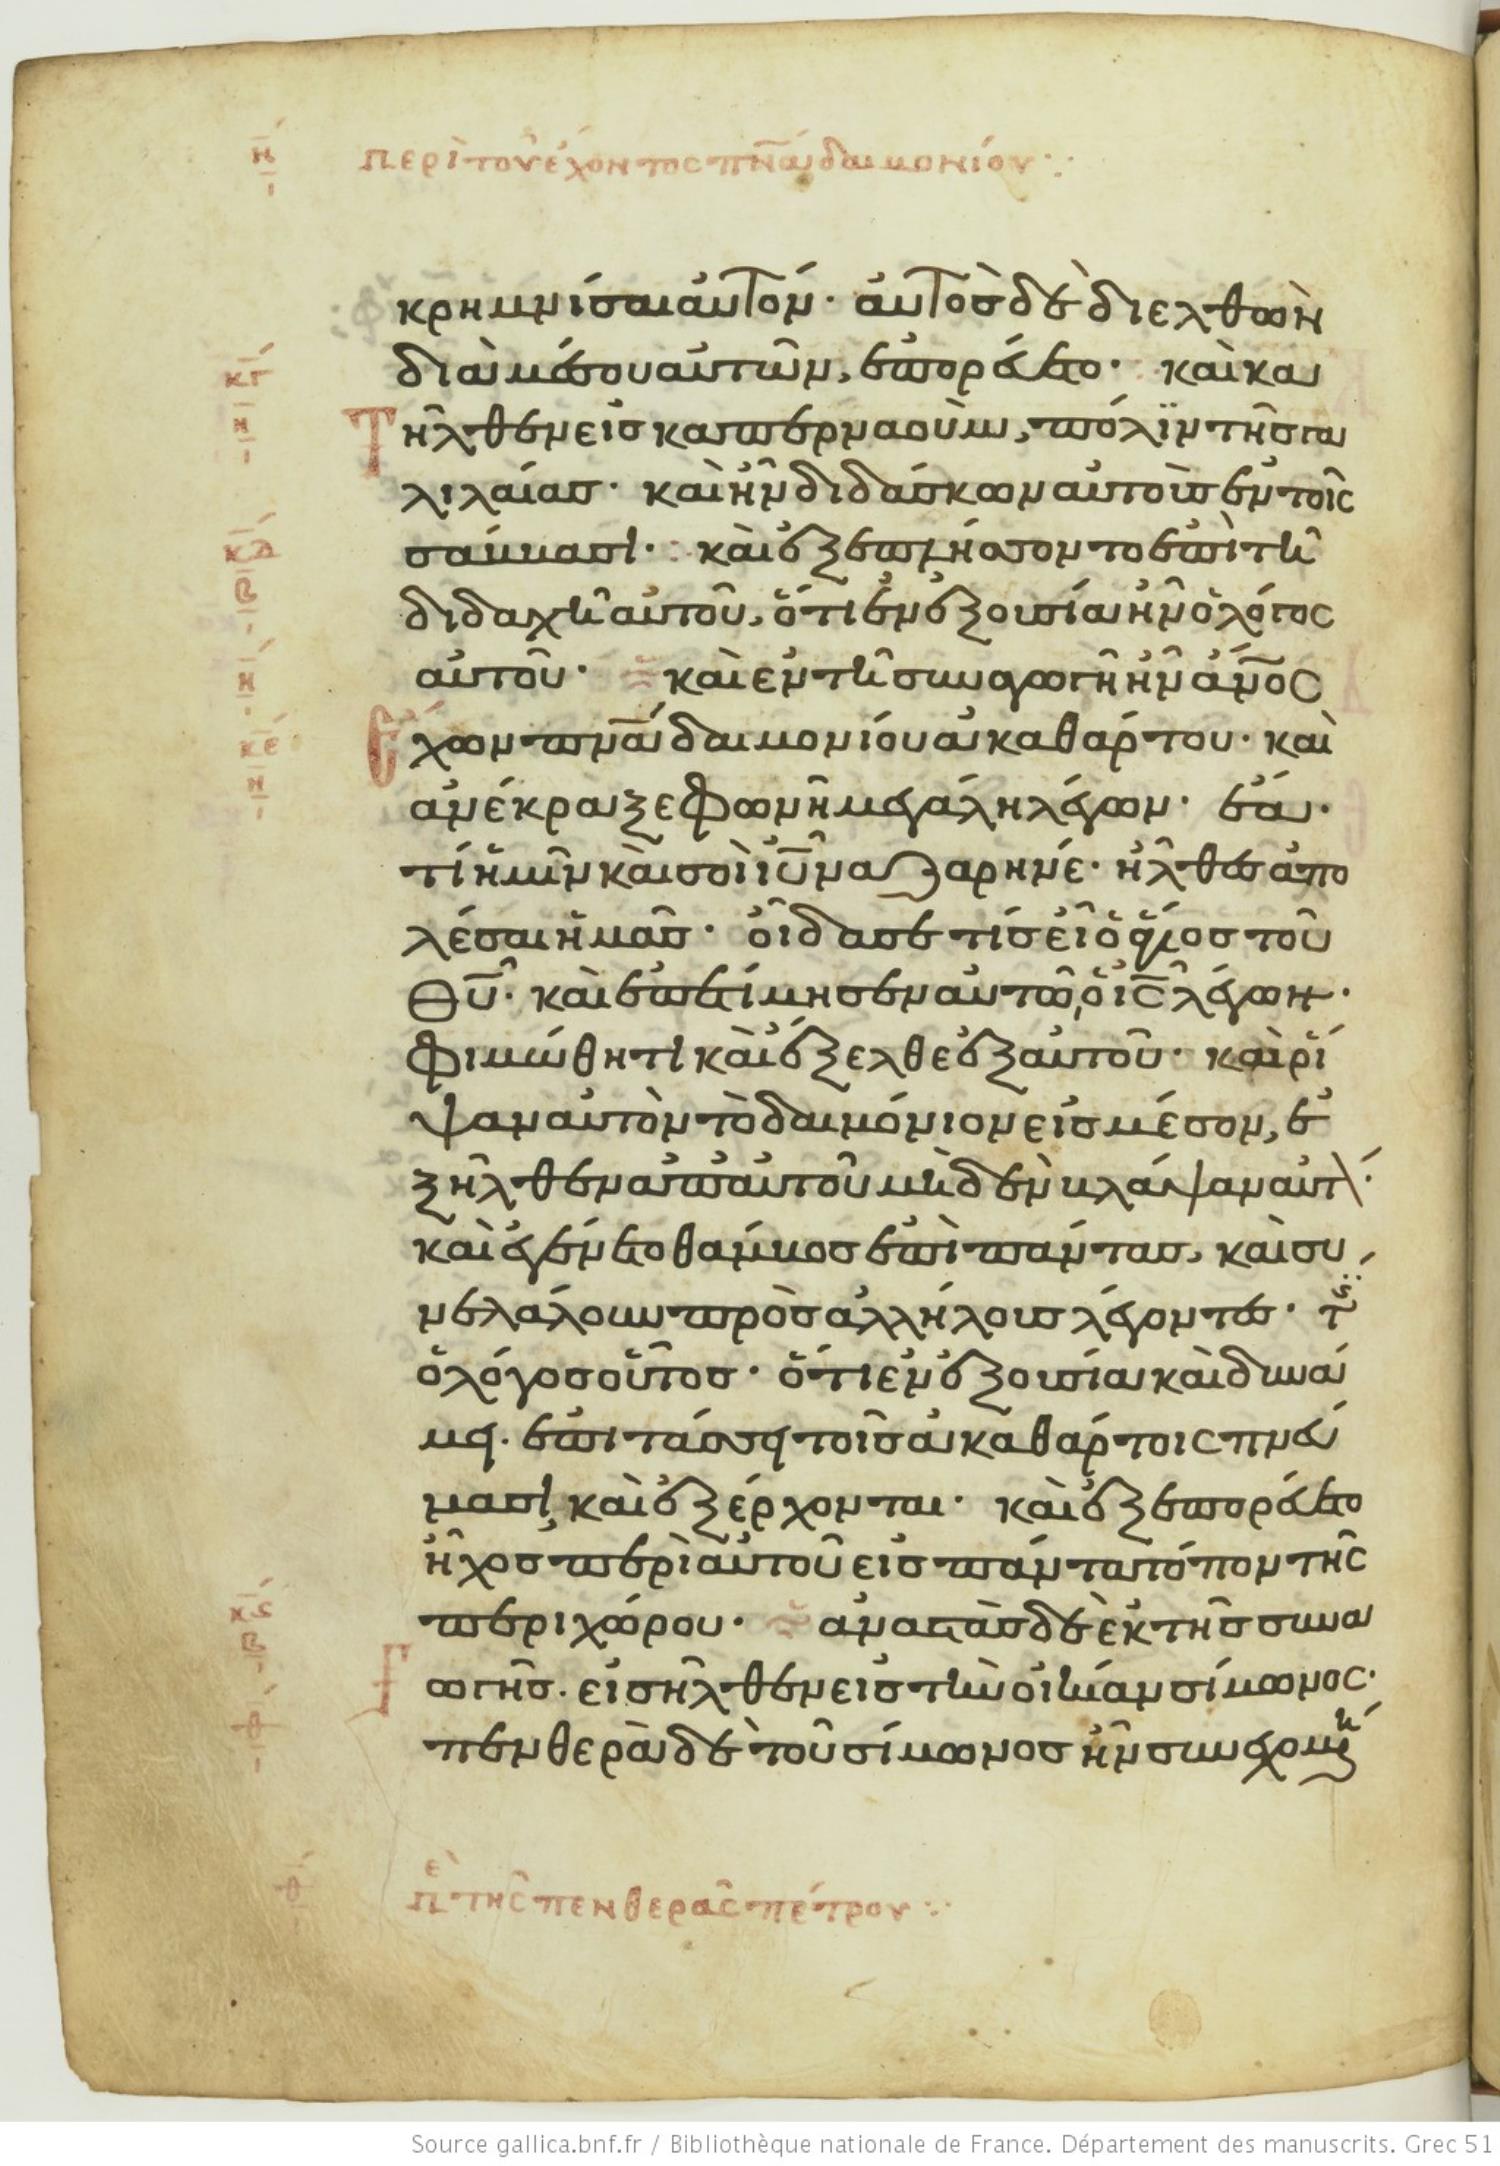 η
περὶ τοῦ ἔχοντος πν̅α δαιμονίου
κρημνίσαι αὐτόν· αὐτὸς δὲ διελθὼν
κγ
η
διὰ μέσου αὐτῶν, ἐπορεύετο· καὶ κα
τῆλθεν εἰς καπερναοὺμ, πόλϊν τῆς γα
λιλαίας· καὶ ἦν διδάσκων αὐτοὺς ἐν τοῖς
κδ
β
σάββασι· καὶ ἐξεπλήσσοντο ἐπὶ τῆ
διδαχῆ αὐτοῦ, ὅτι ἐν ἐξουσία ἦν ὁ λόγος
η
κε
η
αὐτοῦ· καὶ ἐν τῆ συναγωγῆ ἦν ἄν̅ος
ἔχων πν̅α δαιμονίου ἀκαθάρτου· καὶ
ἀνέκραξε φωνῆ μεγάλη λέγων· ἔα·
τί ἡμῖν καὶ σοὶ ιυ̅ ναζαρηνέ· ἦλθες ἀπο
λέσαι ἡμᾶς· οἶδα σὲ τίς εἶ ὁ ἅγιος τοῦ
θυ̅· καὶ ἐπετίμησεν αὐτῶ ὁ ις̅ λέγων·
φιμώθητι καὶ ἔξελθε ἐξ αὐτοῦ· καὶ ῥί
ψαν αὐτὸν τὸ δαιμόνιον εἰς μέσον, ἐ
ξῆλθεν ἀπ' αὐτοῦ μηδὲν βλάψαν αὐτ·
καὶ ἐγένετο θάμβος ἐπὶ πάντας, καὶ συ
νελάλουν πρὸς ἀλλήλους λέγοντες· τίς
ὁ λόγος οὗτος· ὅτι ἐν ἐξουσία καὶ δυνά
μει· ἐπιτάσσει τοῖς ἀκαθάρτοις πνεύ
μασι, καὶ ἐξέρχονται· καὶ ἐξεπορεύετο
ἦχος περὶ αὐτοῦ εἰς πάντα τόπον τῆς
κς
β
περιχώρου· ἀναστὰς δὲ ἐκ τῆς συνα
γωγῆς· εἰσῆλθεν εἰς τὴν οἰκίαν σίμωνος·
θ
πενθερὰ δὲ τοῦ σίμωνος ἦν συνεχομέ
θ
πε τῆς πενθερᾶς πέτρου
Source gallica.bnf.fr / Bibliothèque nationale de France. Département des manuscrits. Grec 51